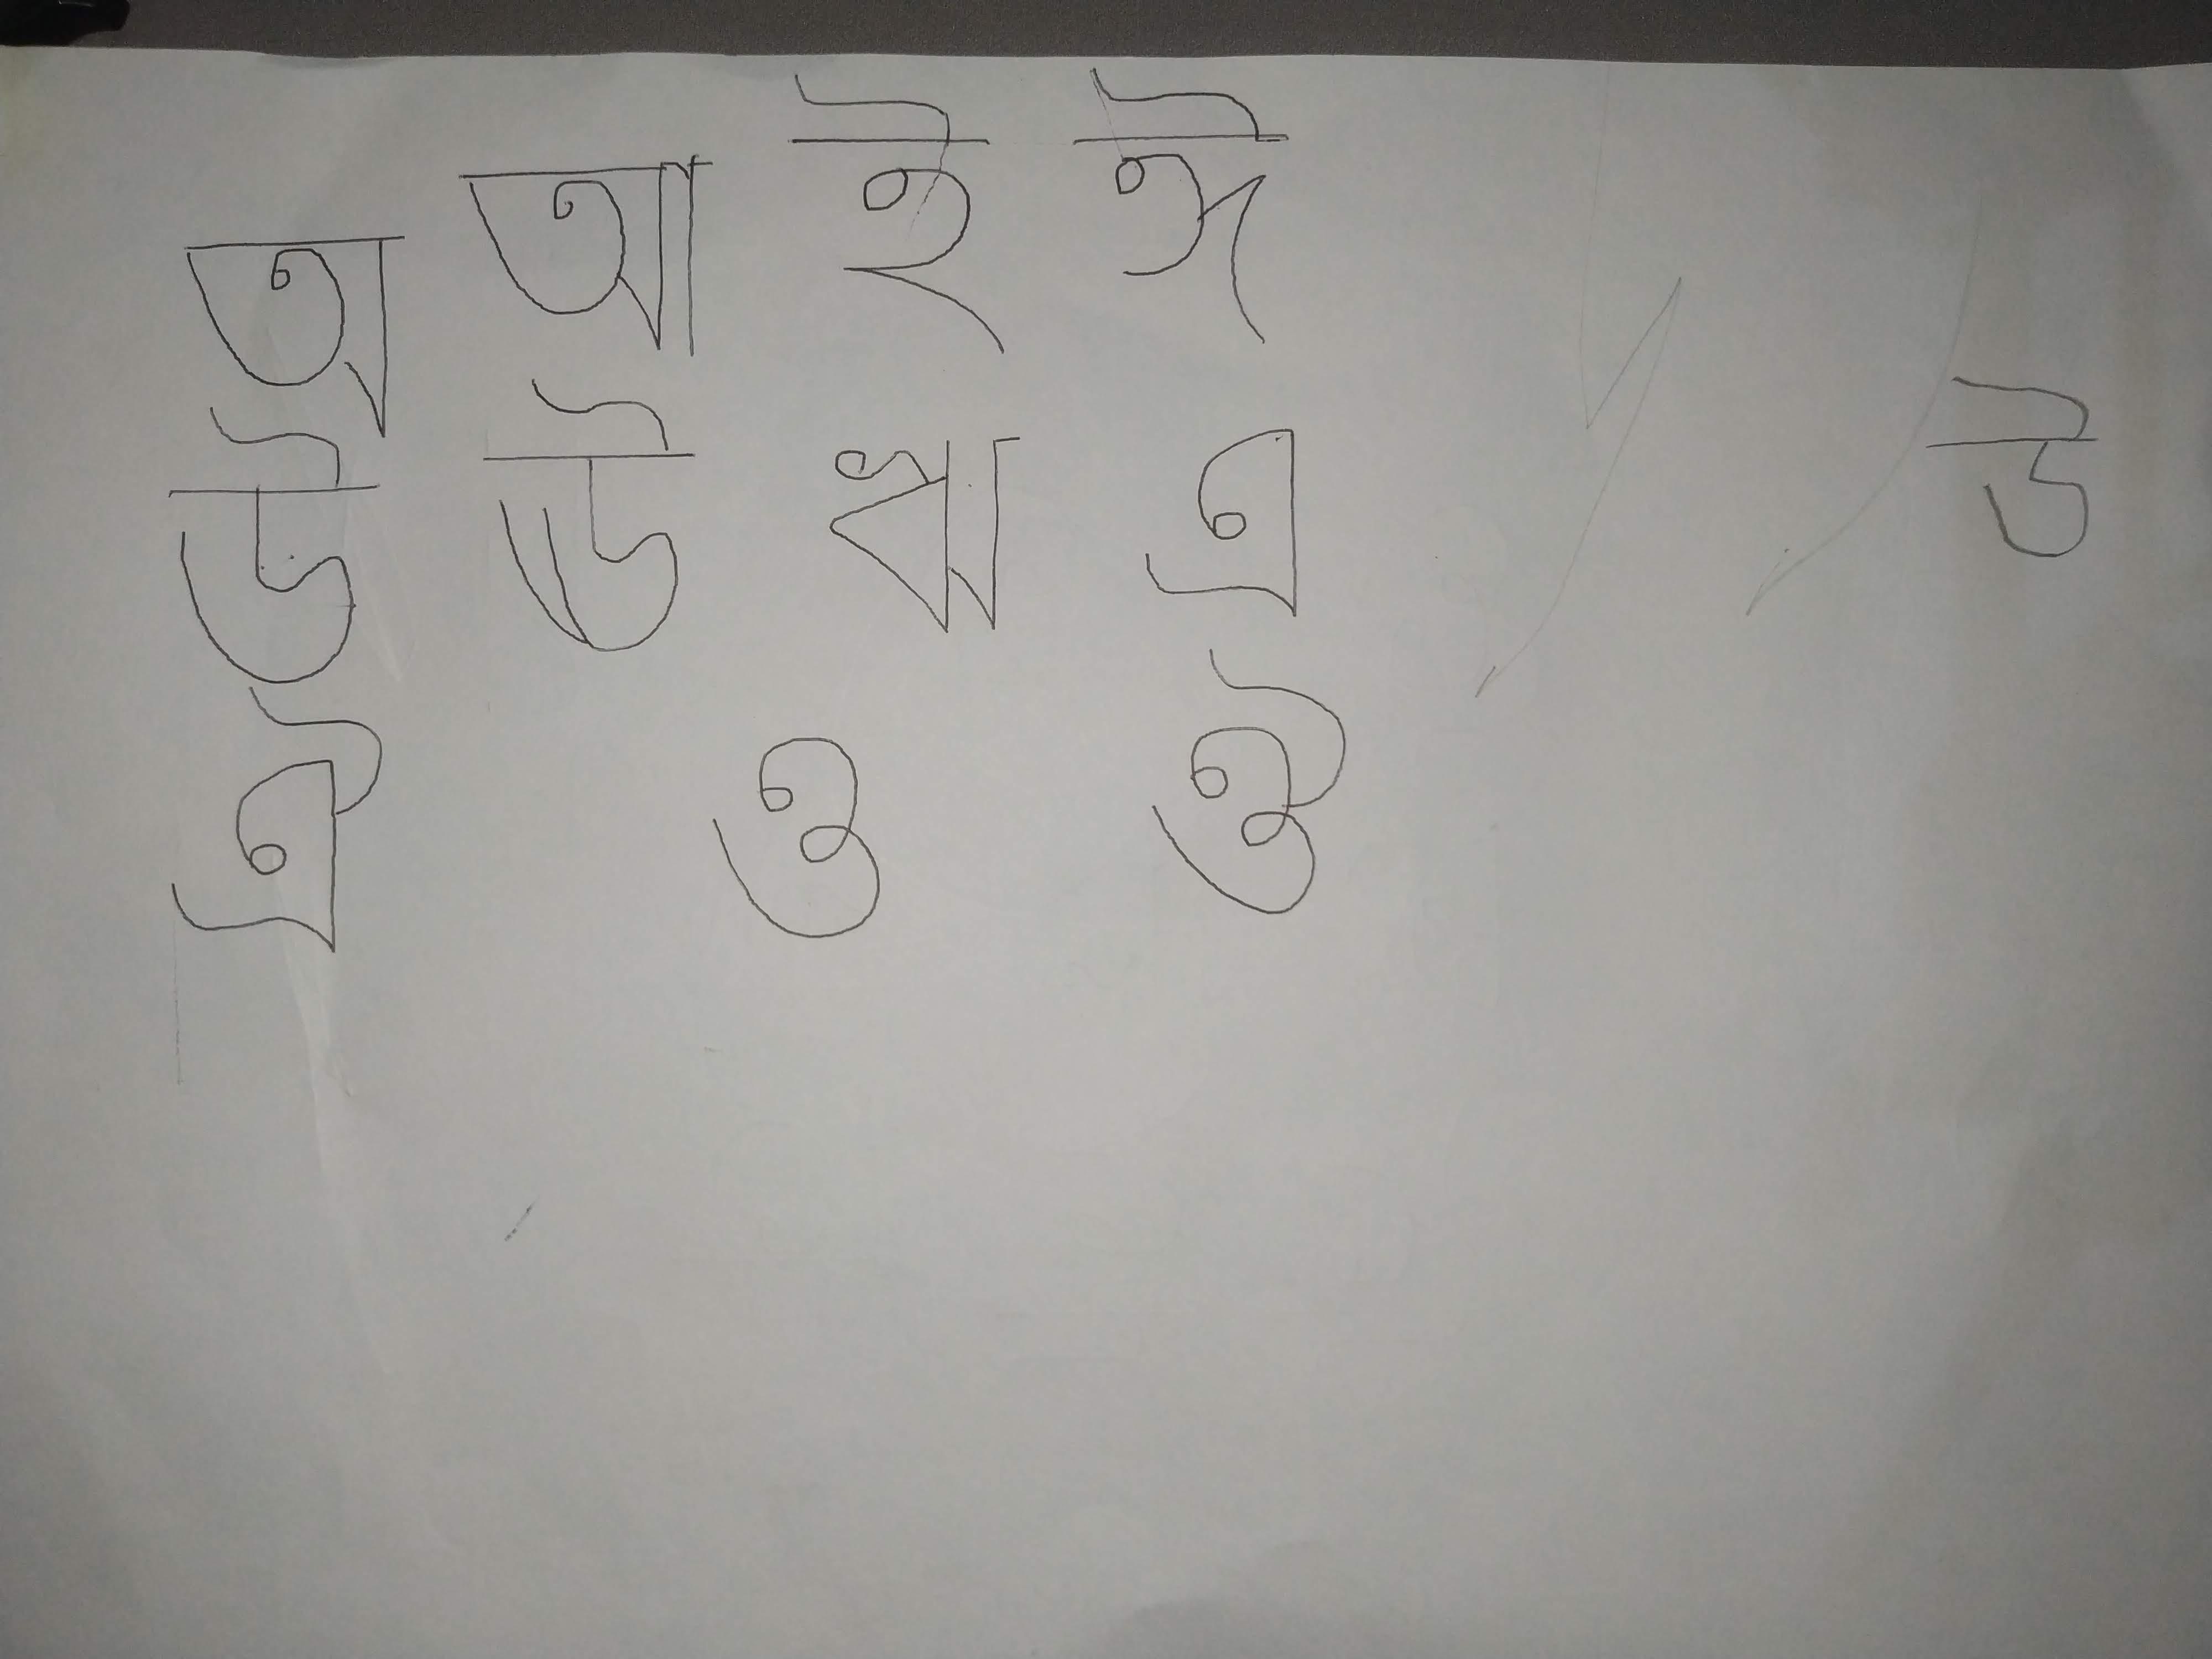 অ আ ই ঈ
উ ঊ ঋ এ উ
ঐ ও ঔ